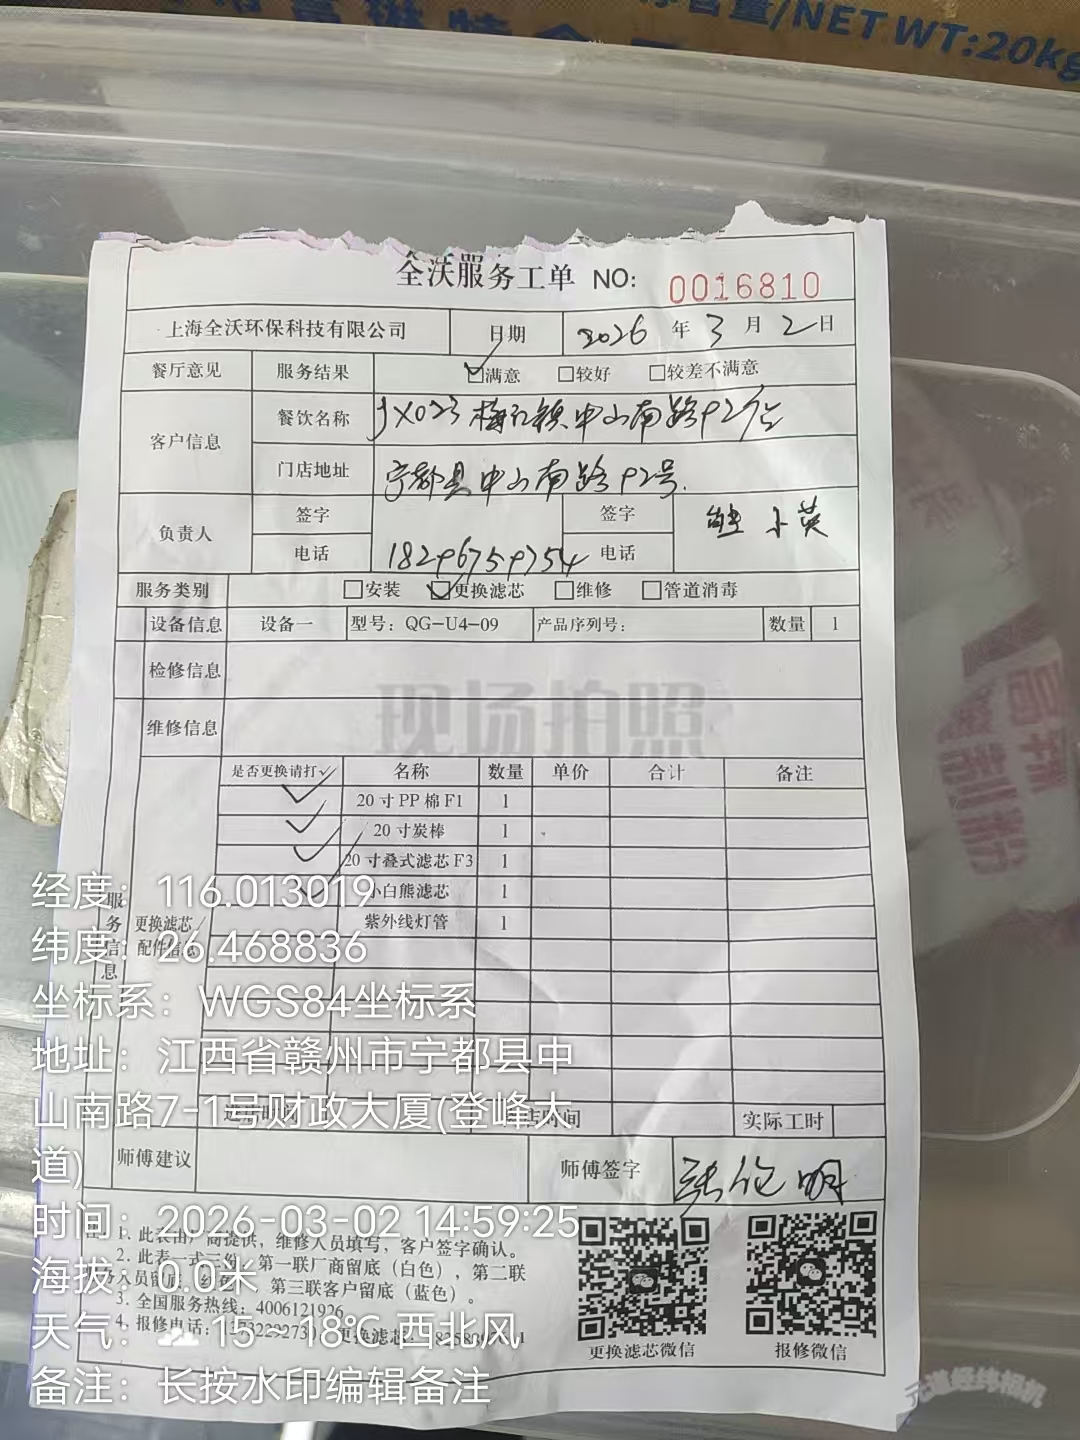 含量/NET WT:20kg
全沃服务工单 NO: 0016810
上海全沃环保科技有限公司 日期 2026年3月2日
餐厅意见 服务结果 ☑满意 □较好 □较差不满意
客户信息 餐饮名称 JX023梅江镇中山南路92店
门店地址 宁都县中山南路92号.
负责人 签字 签字 熊小英
电话 18296759754 电话
服务类别 □安装 ☑更换滤芯 □维修 □管道消毒
设备信息 设备一 型号：QG-U4-09 产品序列号： 数量 1
检修信息
现场拍照
维修信息
是否更换请打✓ 名称 数量 单价 合计 备注
✓ 20寸PP棉F1 1
✓ 20寸炭棒 1
✓ 20寸叠式滤芯F3 1
✓ 小白熊滤芯 1
紫外线灯管 1
服务信息 更换滤芯/配件信息
店时间 实际工时
师傅建议 师傅签字 张伦明
1. 此表由厂商提供，维修人员填写，客户签字确认。
2. 此表一式三份，第一联厂商留底（白色），第二联
人员留底，第三联客户留底（蓝色）。
3. 全国服务热线：4006121926
4. 报修电话： 更换滤芯：
更换滤芯微信 报修微信
经度：116.013019
纬度：26.468836
坐标系：WGS84坐标系
地址：江西省赣州市宁都县中
山南路7-1号财政大厦(登峰大
道)
时间：2026-03-02 14:59:25
海拔：0.0米
天气： 15~18℃ 西北风
备注：长按水印编辑备注
元道经纬相机